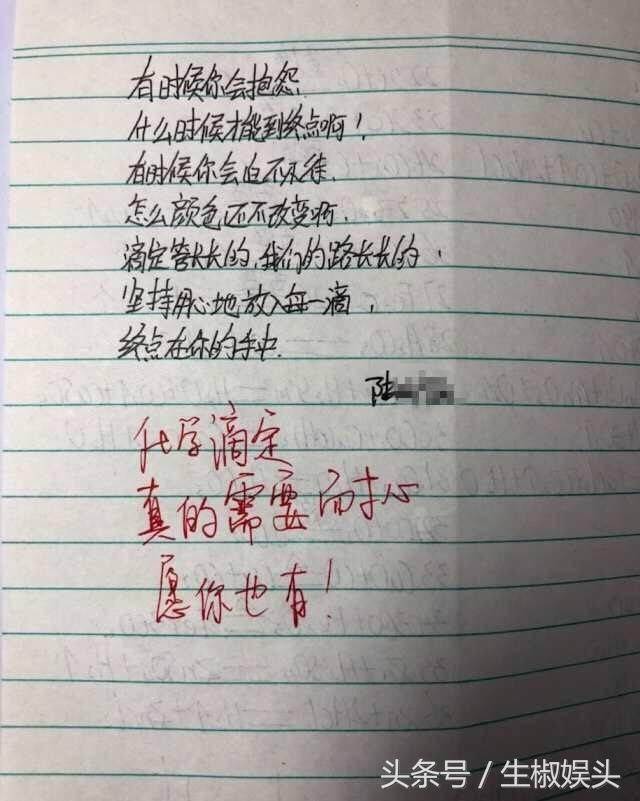 有时候你会抱怨
什么时候才能到终点啊！
有时候你会迫不及待，
怎么颜色还不改变啊，
滴定管长长的，我们的路长长的，
坚持用心地放入每一滴，
终点在你的手中.
陆
化学滴定
真的需要耐心
愿你也有！
头条号／生椒娱头